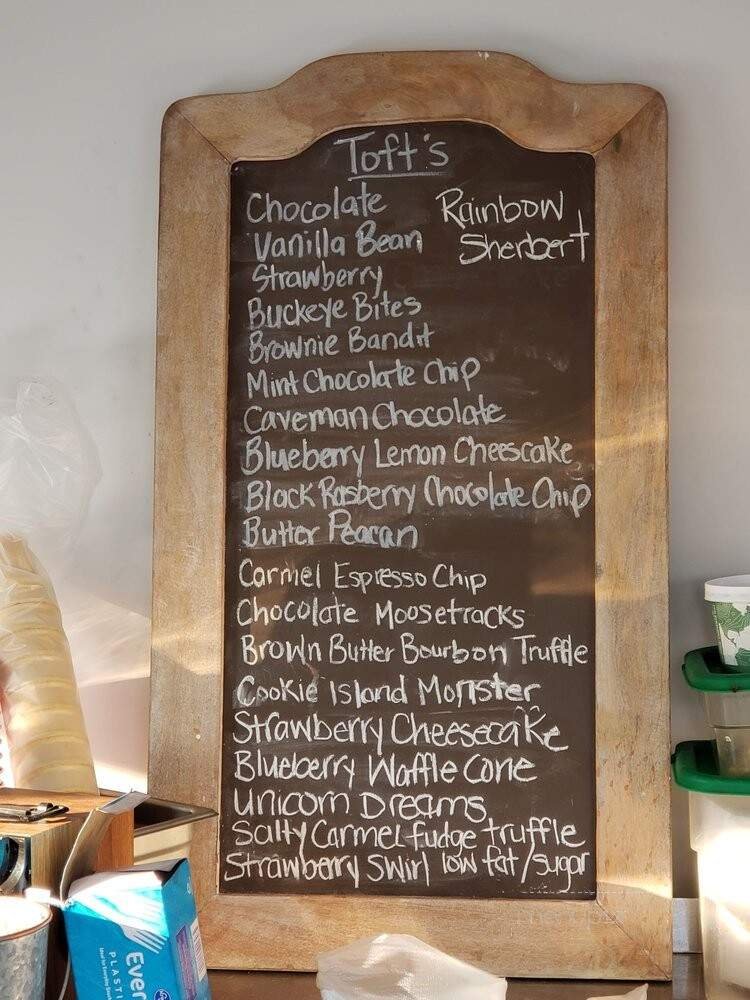 Toft's
Chocolate
Vanilla Bean
Strawberry
Buckeye Bites
Brownie Bandit
Mint Chocolate Chip
Caveman Chocolate
Blueberry Lemon Cheescake
Black Rasberry Chocolate Chip
Butter Peacan
Carmel Espresso Chip
Chocolate Moosetracks
Brown Butter Bourbon Truffle
Cookie Island Monster
Strawberry Cheesecake
Blueberry Waffle Cone
Unicorn Dreams
Salty Carmel fudge truffle
Strawberry Swirl low fat/sugar
Rainbow
Sherbert
Ever
PLASTI